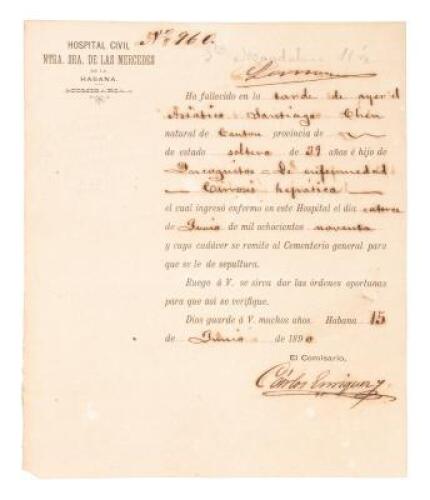 HOSPITAL CIVIL
NTRA. SRA. DE LAS MERCEDES
DE LA
HABANA.
Nº 960.
Ha fallecido en la tarde de ayer el
Asiático Santiago Chen
natural de Canton provincia de
de estado soltero de 39 años é hijo de
Incognitos De enfermedad
Cirrosis hepática
el cual ingresó enfermo en este Hospital el dia catorce
de Junio de mil ochocientos noventa
y cuyo cadáver se remite al Cementerio general para
que se le de sepultura.
Ruego á V. se sirva dar las órdenes oportunas
para que así se verifique.
Dios guarde á V. muchos años. Habana 15
de Junio de 1890
El Comisario,
Cárlos Enriquez